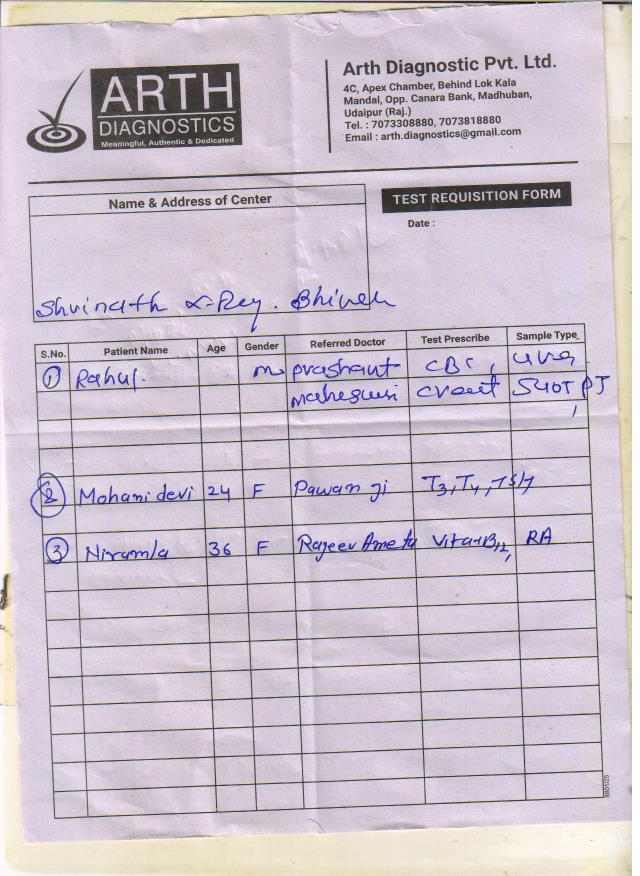 ARTH
DIAGNOSTICS
Meaningful, Authentic & Dedicated
Arth Diagnostic Pvt. Ltd.
4C, Apex Chamber, Behind Lok Kala
Mandal, Opp. Canara Bank, Madhuban,
Udaipur (Raj.)
Tel. : 7073308880, 7073818880
Email : arth.diagnostics@gmail.com
Name & Address of Center
TEST REQUISITION FORM
Date :
Shrinath X-Rey. Bhinder
S.No. Patient Name Age Gender Referred Doctor Test Prescribe Sample Type
1 Rahul. m prashant CBC, urea
maheswari creat SGOT PT
2 Mohani devi 24 F Pawan ji T3, T4, TSH
3 Niramla 36 F Rajeev Ameta Vita-B12, RA
8801/25